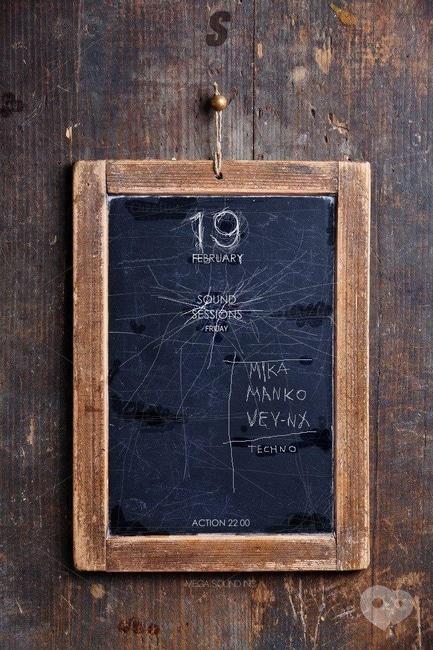 S
19
FEBRUARY
SOUND
SESSIONS
FRIDAY
MIKA
MANKO
VEY-NX
TECHNO
ACTION 22 00
MEGA SOUND INC